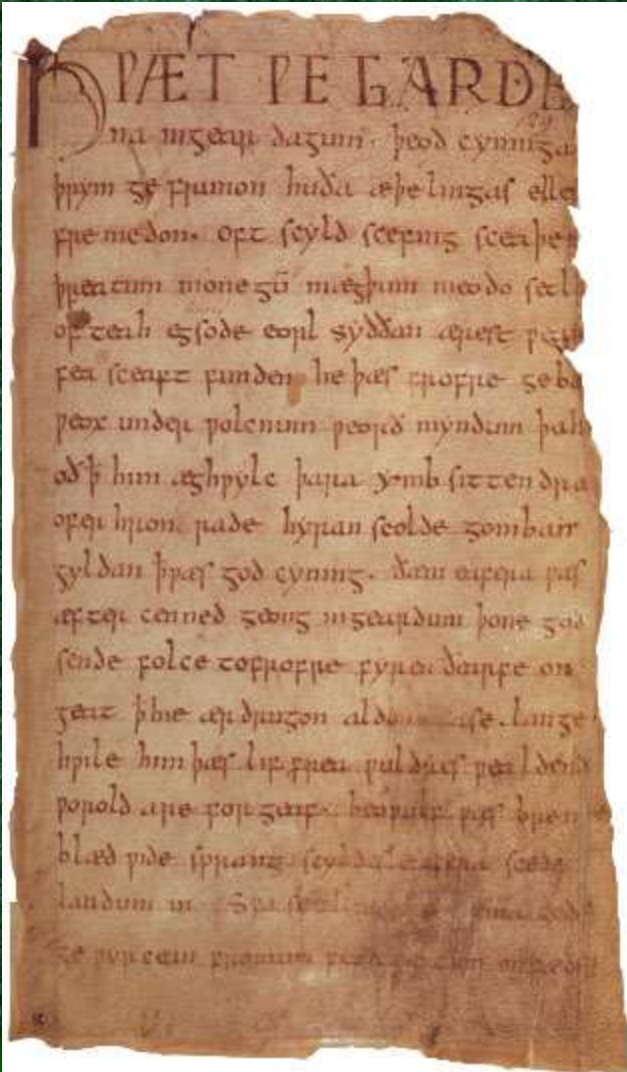 HǷÆT ǷE GARDE
na ingear dagum. þeod cyninga
þrym ge frunon huða æþelingas elle
fremedon. oft scyld scefing sceaþe
þreatum monegū mægþum meodo setl
of teah egsode eorl syððan ærest ƿea
fea sceaft funden he þæs frofre geba
ƿeox under ƿolcnum ƿeorð myndum þah
oð ꝥ him æghƿylc þara ymb sittendra
ofer hron rade hyran scolde gomban
gyldan ꝥ ƿæs god cyning. ðam eafera ƿæs
æfter cenned geong ingeardum þone god
sende folce tofrofre fyren ðearfe on
geat ꝥ hie ær drugon aldor ase. lange
hƿile him þæs lif frea ƿuldres ƿealdend
ƿorold are for geaf. beoƿulf ƿæs breme
blæd ƿide sprang scyldes eafera scede
landum in. Sƿa
ge ƿyrcean fromum